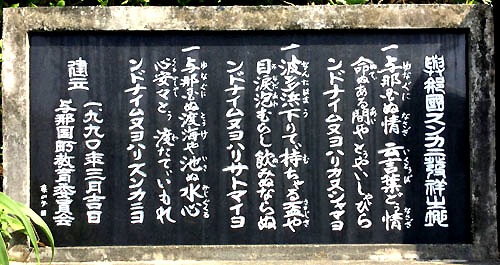 與那國スンカニ發祥之地
一与那国ぬ情 言葉どぅ情
命ぬある間や とぅやいしゃびら
ンドナイムヌヨハリカヌシャマヨ
一波多浜下りてぃ 持ちゃる盃や
目涙泡むらし 飲みぬならぬ
ンドナイムヌヨハリサトマイヨ
一与那国ぬ渡海や 池ぬ水心
心安々とぅ 渡てぃいもれ
ンドナイムヌヨハリスンカニヨ
建立 一九九〇年三月吉日
与那国町教育委員会